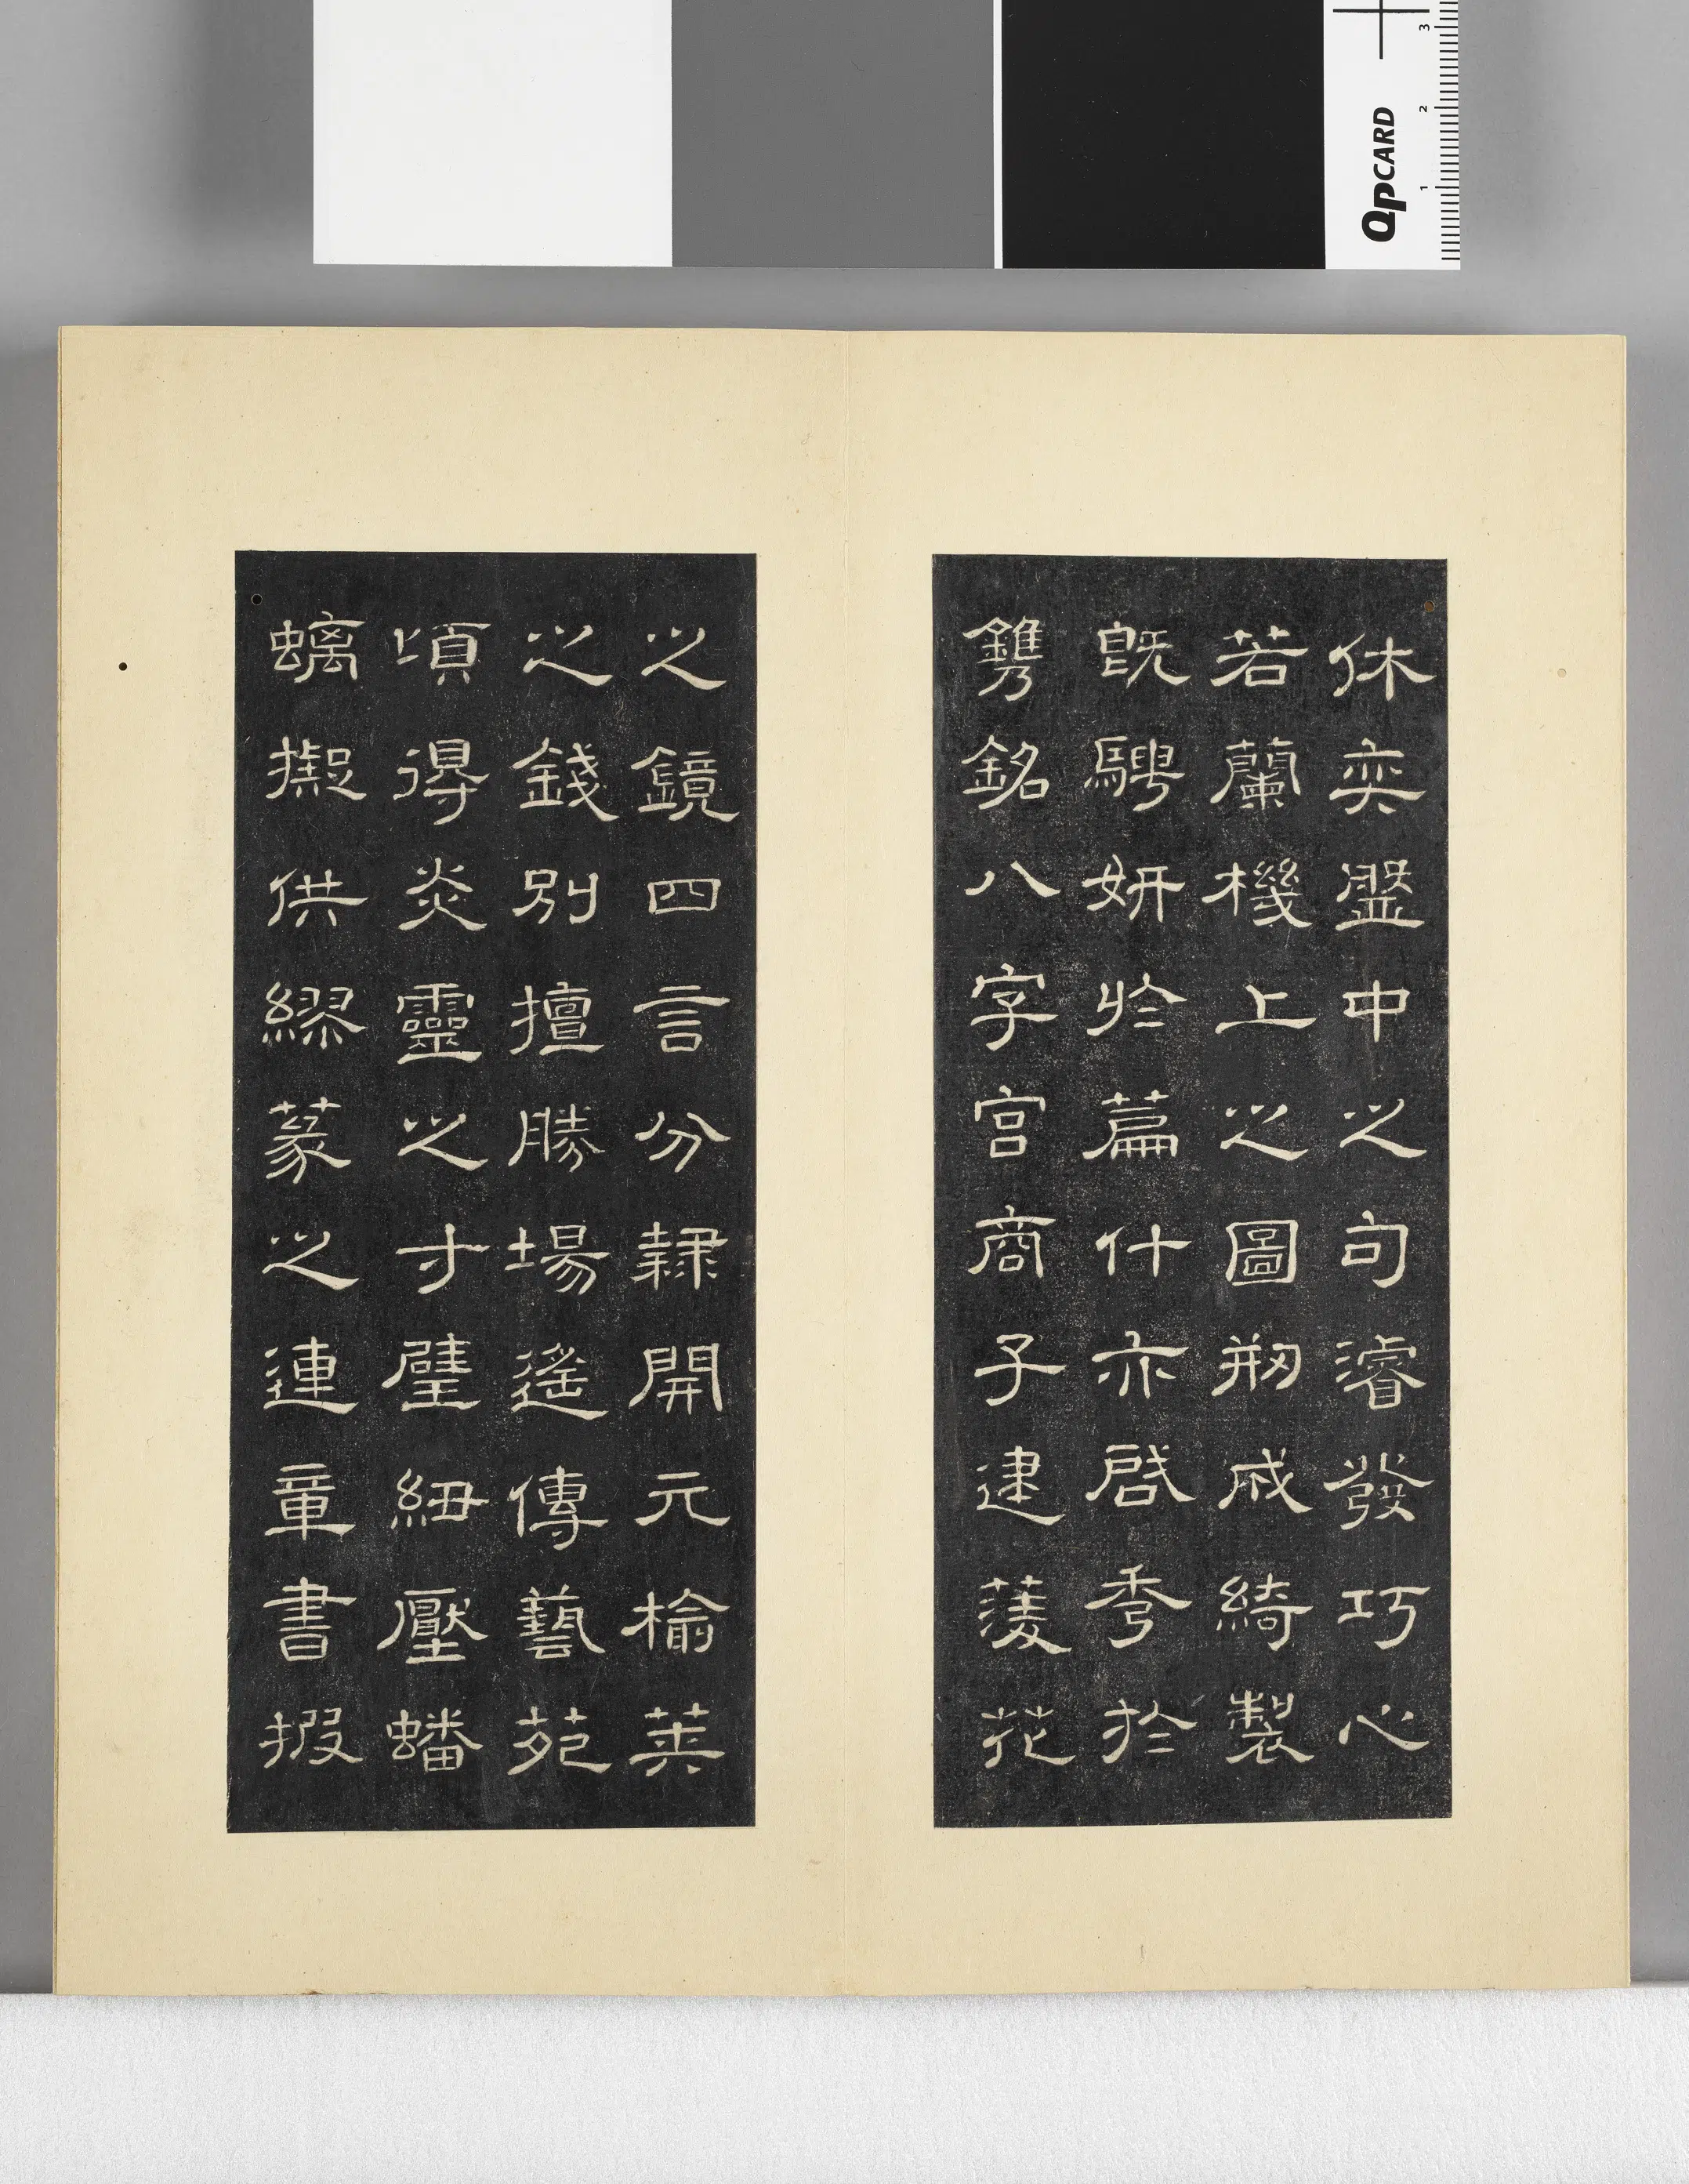 休奕盤中之句濬發巧心
若蘭機上之圖剏成綺製
旣騁姸於篇什亦啟秀於
鐫銘八字宮商子建菱花
之鏡四言分隸開元榆莢
之錢別擅勝場遙傳藝苑
頃得炎靈之寸璧紐壓蟠
螭擬供繆篆之連章書搬
QPCARD
1 2 3